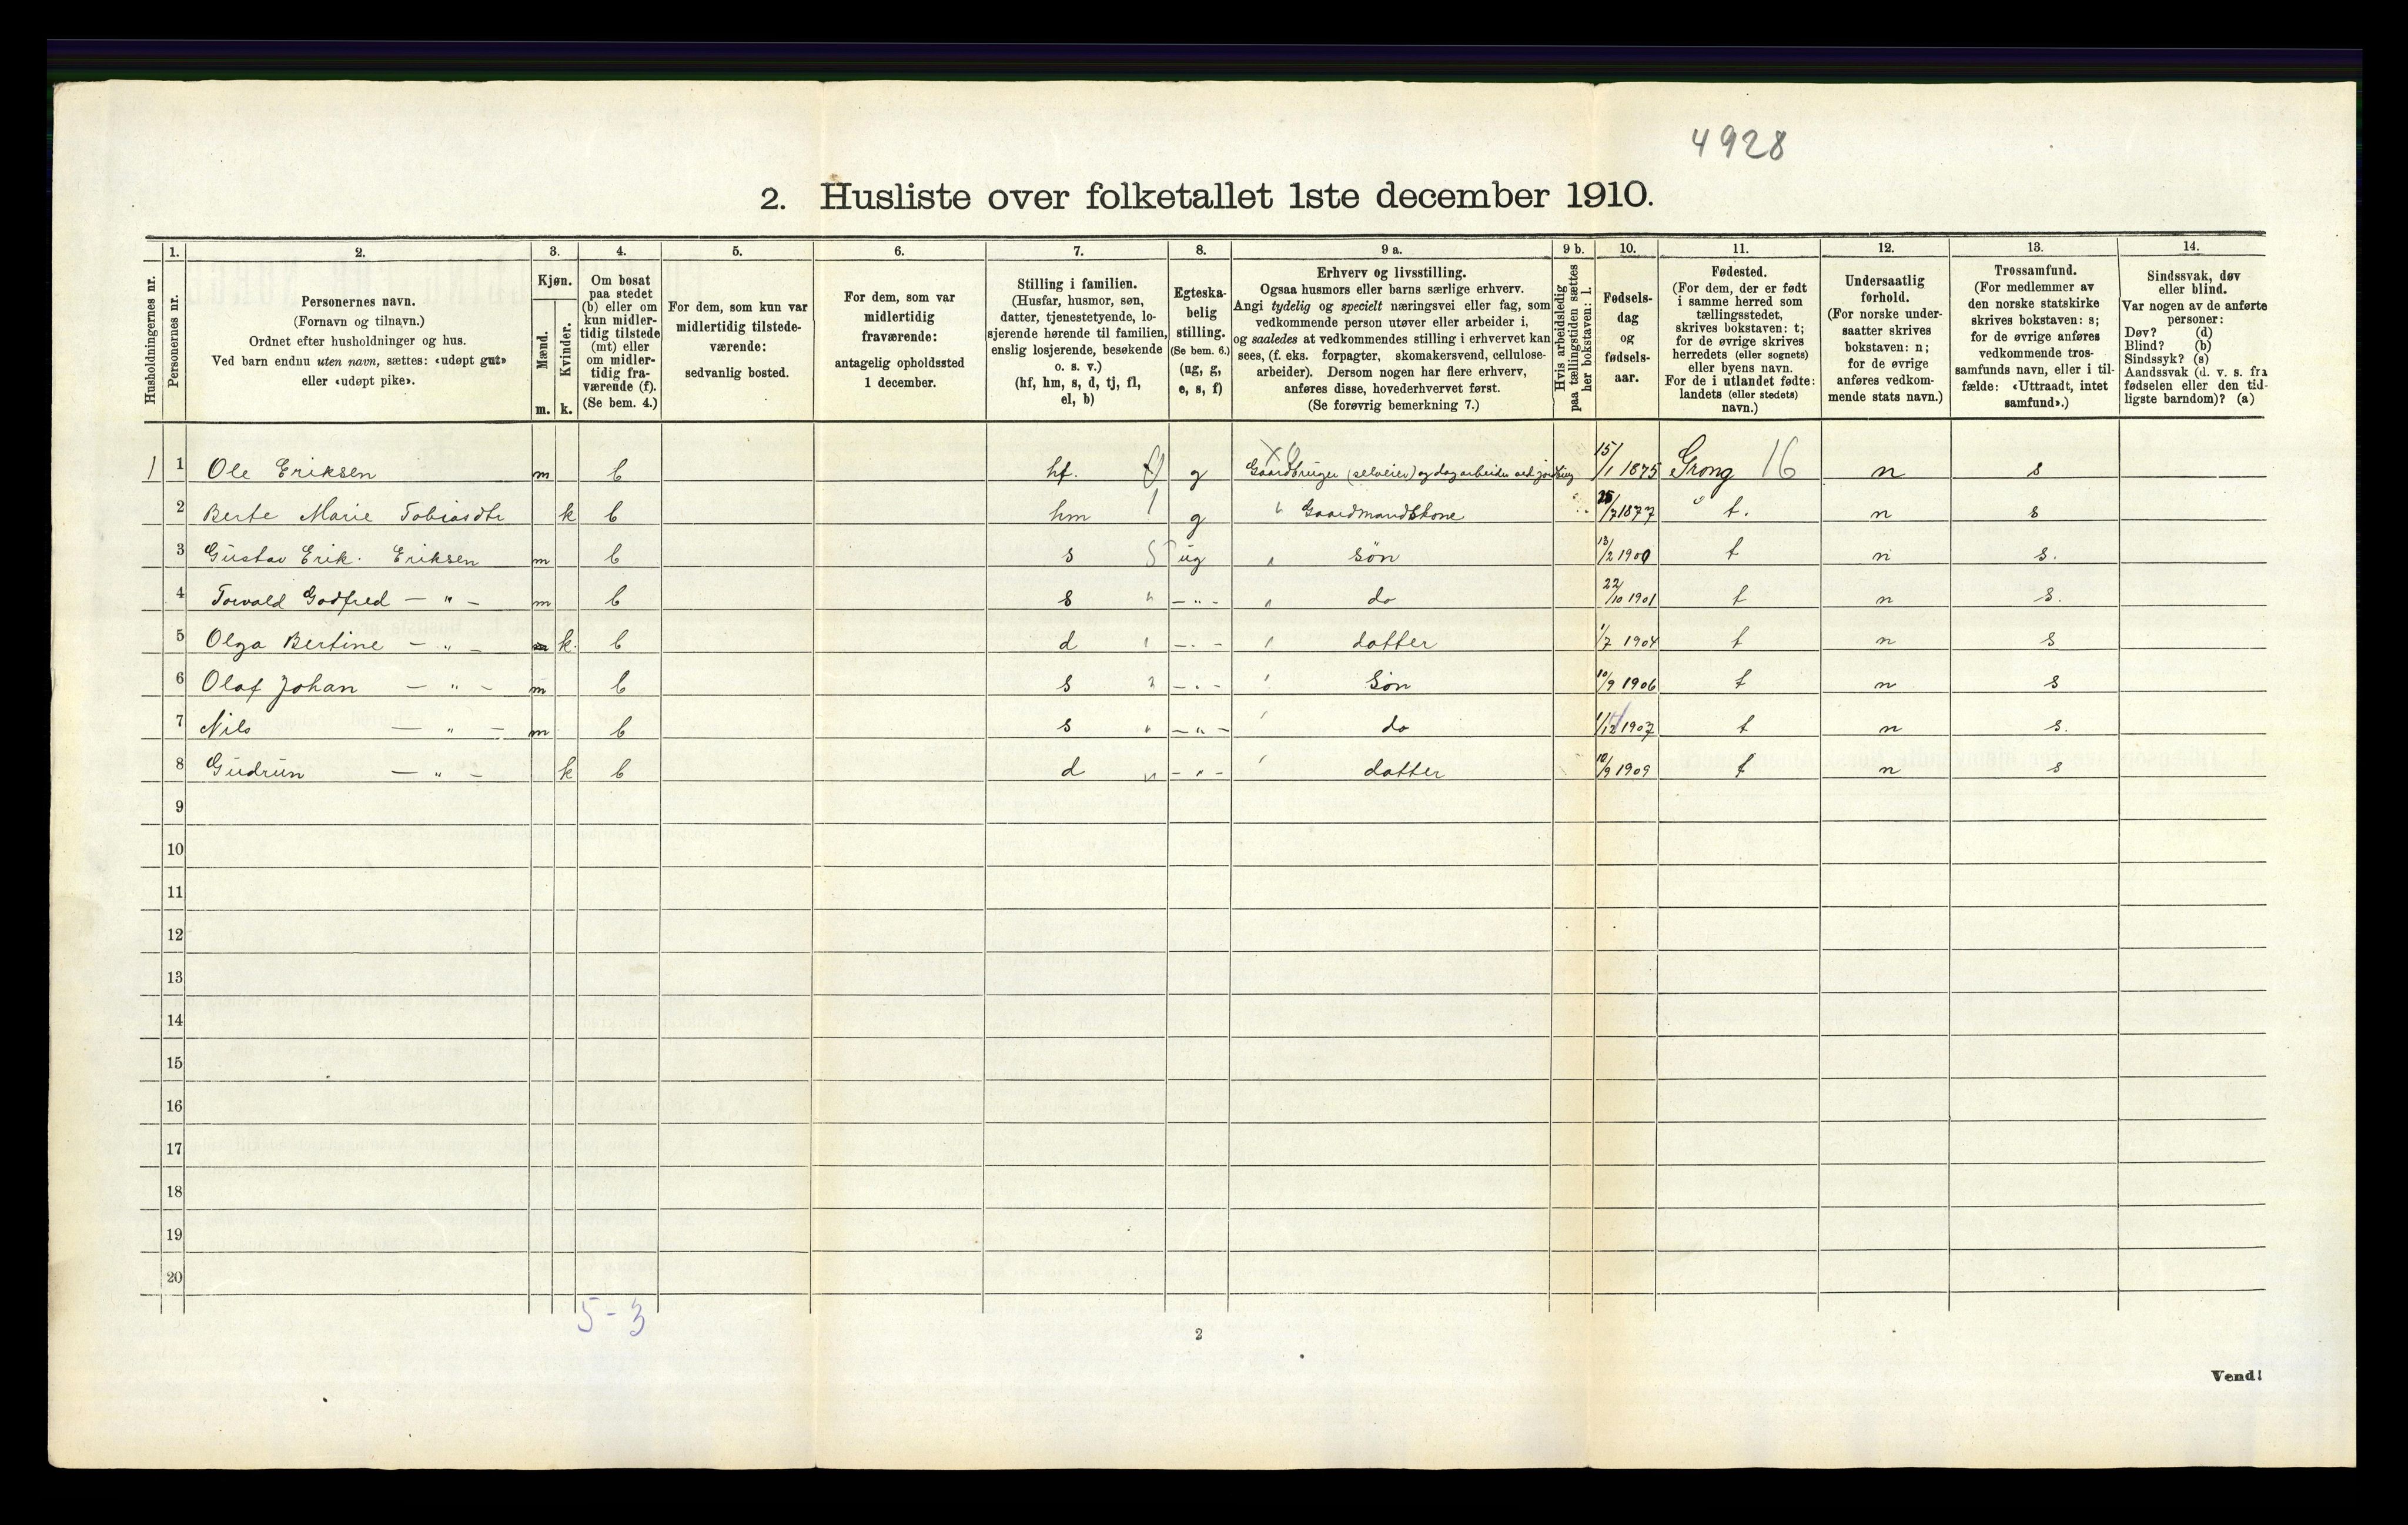 4928
2. Husliste over folketallet 1ste december 1910.
Husholdningernes nr.
1. Personernes nr.
2. Personernes navn.
(Fornavn og tilnavn.)
Ordnet efter husholdninger og hus.
Ved barn endnu uten navn, sættes: «udøpt gut»
eller «udøpt pike».
3. Kjøn.
Mænd. m.
Kvinder. k.
4. Om bosat
paa stedet
(b) eller om
kun midler-
tidig tilstede
(mt) eller
om midler-
tidig fra-
værende (f).
(Se bem. 4.)
5. For dem, som kun var
midlertidig tilstede-
værende:
sedvanlig bosted.
6. For dem, som var
midlertidig
fraværende:
antagelig opholdssted
1 december.
7. Stilling i familien.
(Husfar, husmor, søn,
datter, tjenestetyende, lo-
sjerende hørende til familien,
enslig losjerende, besøkende
o. s. v.)
(hf, hm, s, d, tj, fl,
el, b)
8. Egteska-
belig
stilling.
(Se bem. 6.)
(ug, g,
e, s, f)
9 a. Erhverv og livsstilling.
Ogsaa husmors eller barns særlige erhverv.
Angi tydelig og specielt næringsvei eller fag, som
vedkommende person utøver eller arbeider i,
og saaledes at vedkommendes stilling i erhvervet kan
sees, (f. eks. forpagter, skomakersvend, cellulose-
arbeider). Dersom nogen har flere erhverv,
anføres disse, hovederhvervet først.
(Se forøvrig bemerkning 7.)
9 b. Hvis arbeidsledig
paa tællingstiden sættes
her bokstaven: l.
10. Fødsels-
dag
og
fødsels-
aar.
11. Fødested.
(For dem, der er født
i samme herred som
tællingsstedet,
skrives bokstaven: t;
for de øvrige skrives
herredets (eller sognets)
eller byens navn.
For de i utlandet fødte:
landets (eller stedets)
navn.)
12. Undersaatlig
forhold.
(For norske under-
saatter skrives
bokstaven: n;
for de øvrige
anføres vedkom-
mende stats navn.)
13. Trossamfund.
(For medlemmer av
den norske statskirke
skrives bokstaven: s;
for de øvrige anføres
vedkommende tros-
samfunds navn, eller i til-
fælde: «Uttraadt, intet
samfund».)
14. Sindssvak, døv
eller blind.
Var nogen av de anførte
personer:
Døv? (d)
Blind? (b)
Sindssyk? (s)
Aandssvak (d. v. s. fra
fødselen eller den tid-
ligste barndom)? (a)
1 1 Ole Eriksen m b hf. g Gaardbruger (selveier) og dagarbeider ved 15/1 1875 Grong 16 n s
2 Berte Marie Tobiasdtr k b hm g Gaardmandskone 25/7 1877 t. n s
3 Gustav Erik. Eriksen m b s ug søn 13/2 1900 t n s.
4 Torvald Godfred — " — m b s — " — do 22/10 1901 t n s.
5 Olga Bertine — " — k. b d — " — datter 1/7 1904 t n s
6 Olaf Johan — " — m b s — " — Søn 10/9 1906 t n s
7 Nils — " — m b s — " — do 1/12 1907 t n s.
8 Gudrun — " — k b d — " — datter 10/9 1909 t n s
9
10
11
12
13
14
15
16
17
18
19
20
5-3
2
Vend!